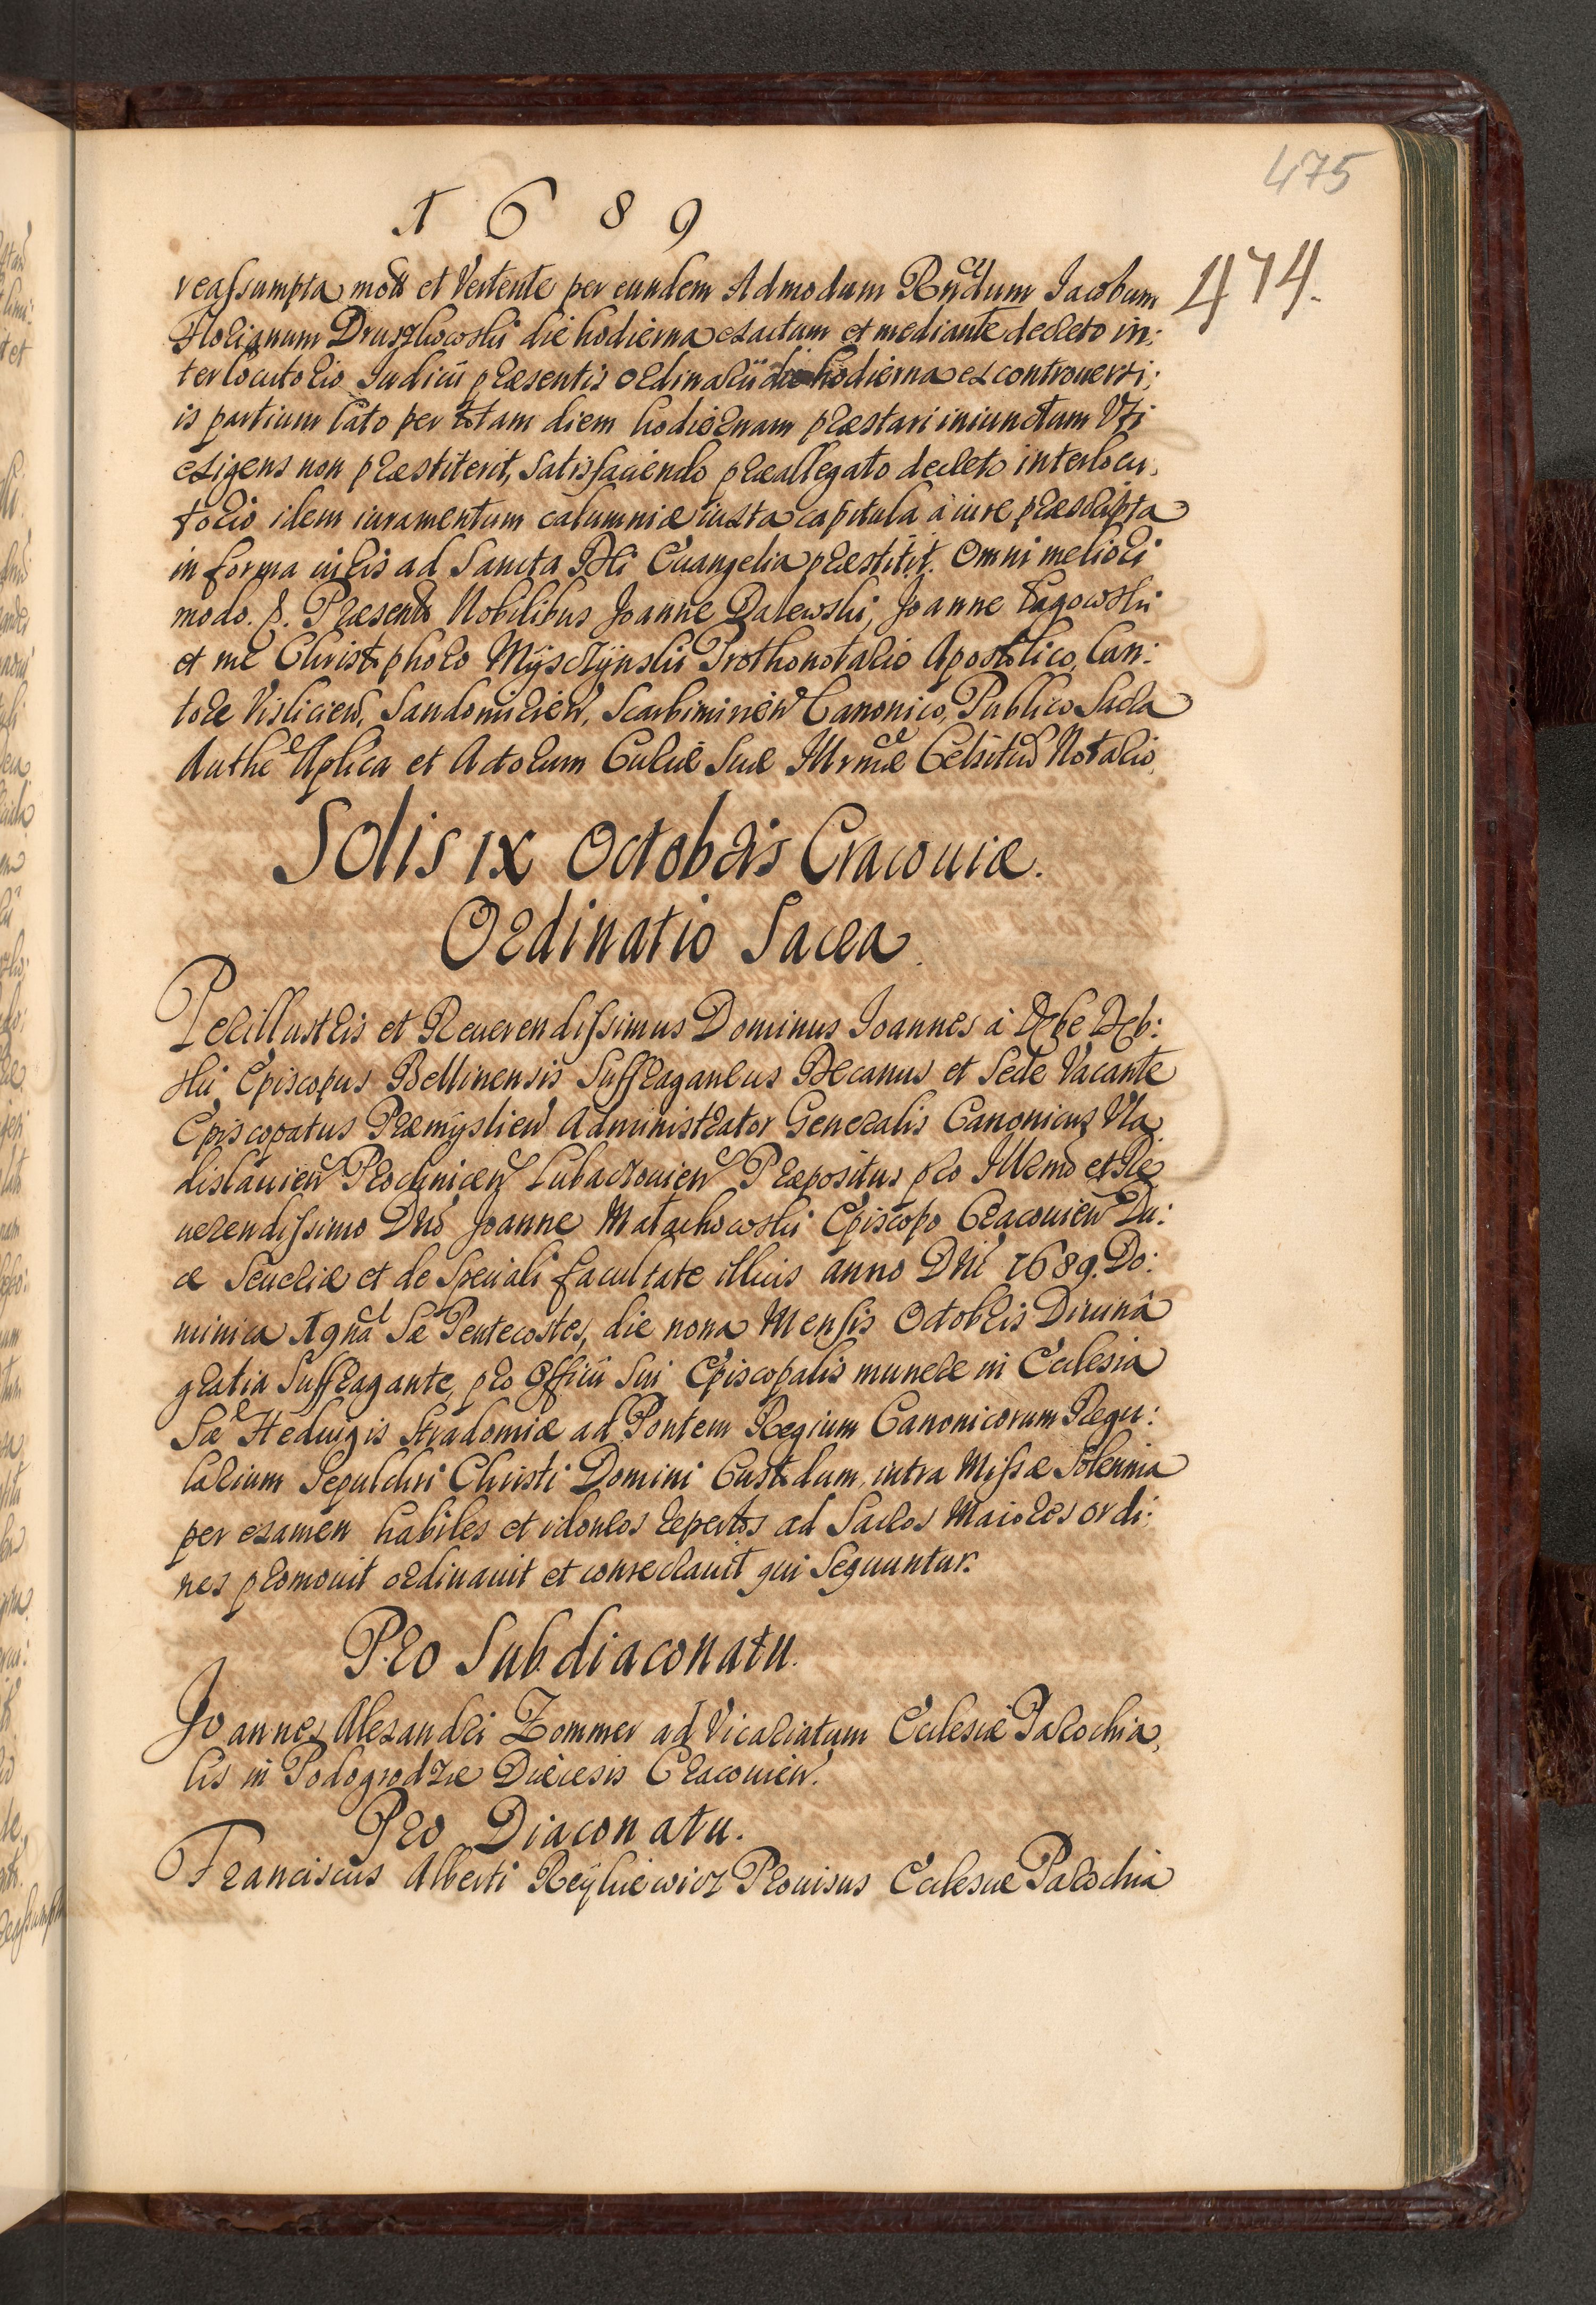 475
1689
474.
reassumpta mota et Vertente per eundem Admodum Rndum Jacobum
Florianum Druszkowski die hodierna exactum et mediante decreto in:
terlocutorio Judicii præsentis ordinarii die hodierna ex controuersi:
is partium lato per totam diem hodiernam præstari iniunctum Vti
exigens non præstiterit, Satisfaciendo præallegato decreto interlocu:
torio idem iuramentum calumniæ iuxta capitula à iure præscripta
in forma iuris ad Sancta Dei Euangelia præstitit. Omni meliori
modo. Præsentib Nobilibus Joanne Dalewski, Joanne Łagowski
et me Christophoro Mÿsczÿnski Prothonotario Apostolico, Can:
tore Visliciens, Sandomirien, Scarbimirien Canonico, Publico Sacra
Authe Aplica et Actorum Curiæ Suæ Illrmæ Celsitud Notario.
Solis IX Octobris Cracouiæ.
Ordinatio Sacra.
Perillustris et Reuerendissimus Dominus Joannes à Dębe Dęb:
ski Episcopus Bellinensis Suffraganeus Decanus et Sede Vacante
Episcopatus Præmÿslien Administrator Generalis Canonicus Vla
dislauien Prochnicen Lubaczouien Præpositus pro Illrmo et Re
uerendissimo Dno Joanne Małachowski Episcopo Cracouien Du:
ce Seueriæ et de Speciali facultate illius anno Dni 1689. Do:
minica 19na Sæ Pentecostes, die nona Mensis Octobris Diuinâ
gratia Suffragante, pro Officii Sui Episcopalis munere in Ecclesia
Sæ Heduigis Stradomiæ ad Pontem Regium Canonicorum Regu:
larium Sepulchri Christi Domini Custodum, intra Missæ Solennia
per examen habiles et idoneos repertos ad Sacros Maiores ordi:
nes promouit ordinauit et consecrauit qui Sequuntur.
Pro Subdiaconatu.
Joannes Alexandri Zommer ad Vicariatum Ecclesiæ Parochia,
lis in Podogrodzie Diæcesis Cracouien.
Pro Diaconatu.
Franciscus Alberti Reÿkiewicz Prouisus Ecclesiæ Parochia